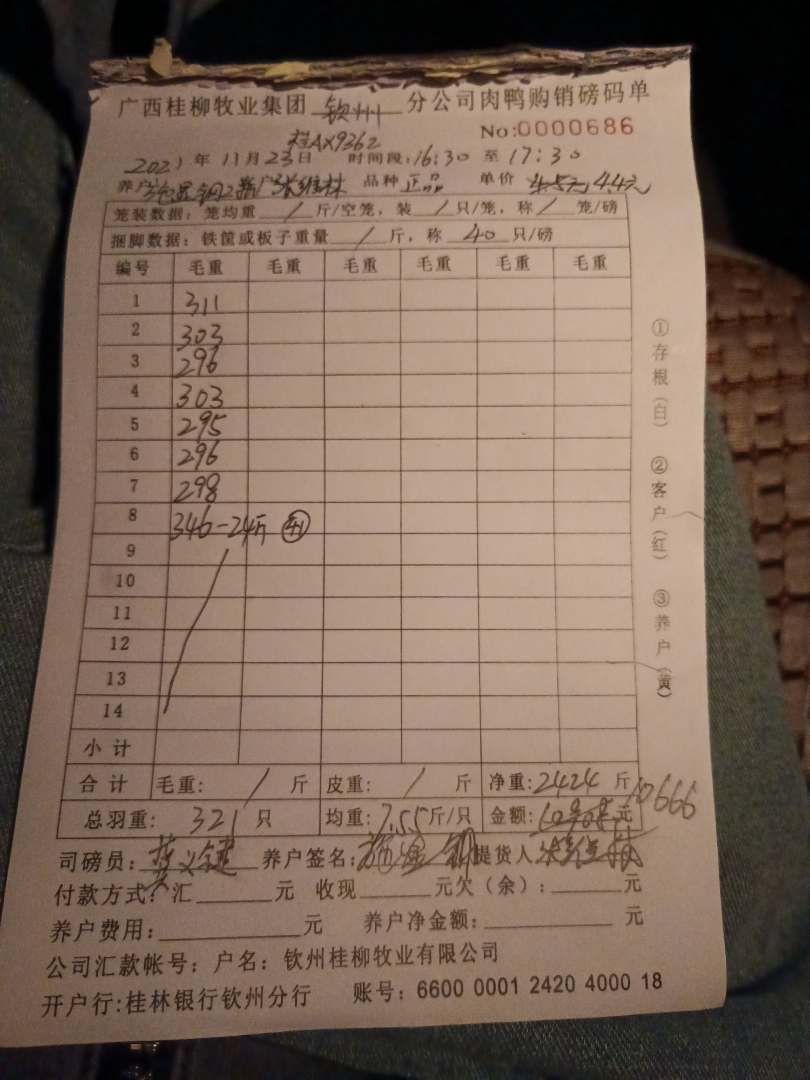 广西桂柳牧业集团 钦州 分公司肉鸭购销磅码单
桂AX9362
No:0000686
2021年11月23日 时间段:16:30 至 17:30
养户 客户 品种 正品 单价 4.5元 4.4元
笼装数据：笼均重 / 斤/空笼，装 / 只/笼，称 / 笼/磅
捆脚数据：铁筐或板子重量 / 斤，称 40 只/磅
编号 毛重 毛重 毛重 毛重 毛重 毛重
1 311
2 303
3 296
4 303
5 295
6 296
7 298
8 346-24斤
9
10
11
12
13
14
小计
合计 毛重： / 斤 皮重： / 斤 净重：2424 斤
总羽重： 321 只 均重：7.55斤/只 金额： 元 10666
司磅员： 养户签名： 提货人
付款方式：汇 元 收现 元欠（余）： 元
养户费用： 元 养户净金额： 元
公司汇款帐号：户名：钦州桂柳牧业有限公司
开户行:桂林银行钦州分行 账号：6600 0001 2420 4000 18
①存根（白） ②客户（红） ③养户（黄）